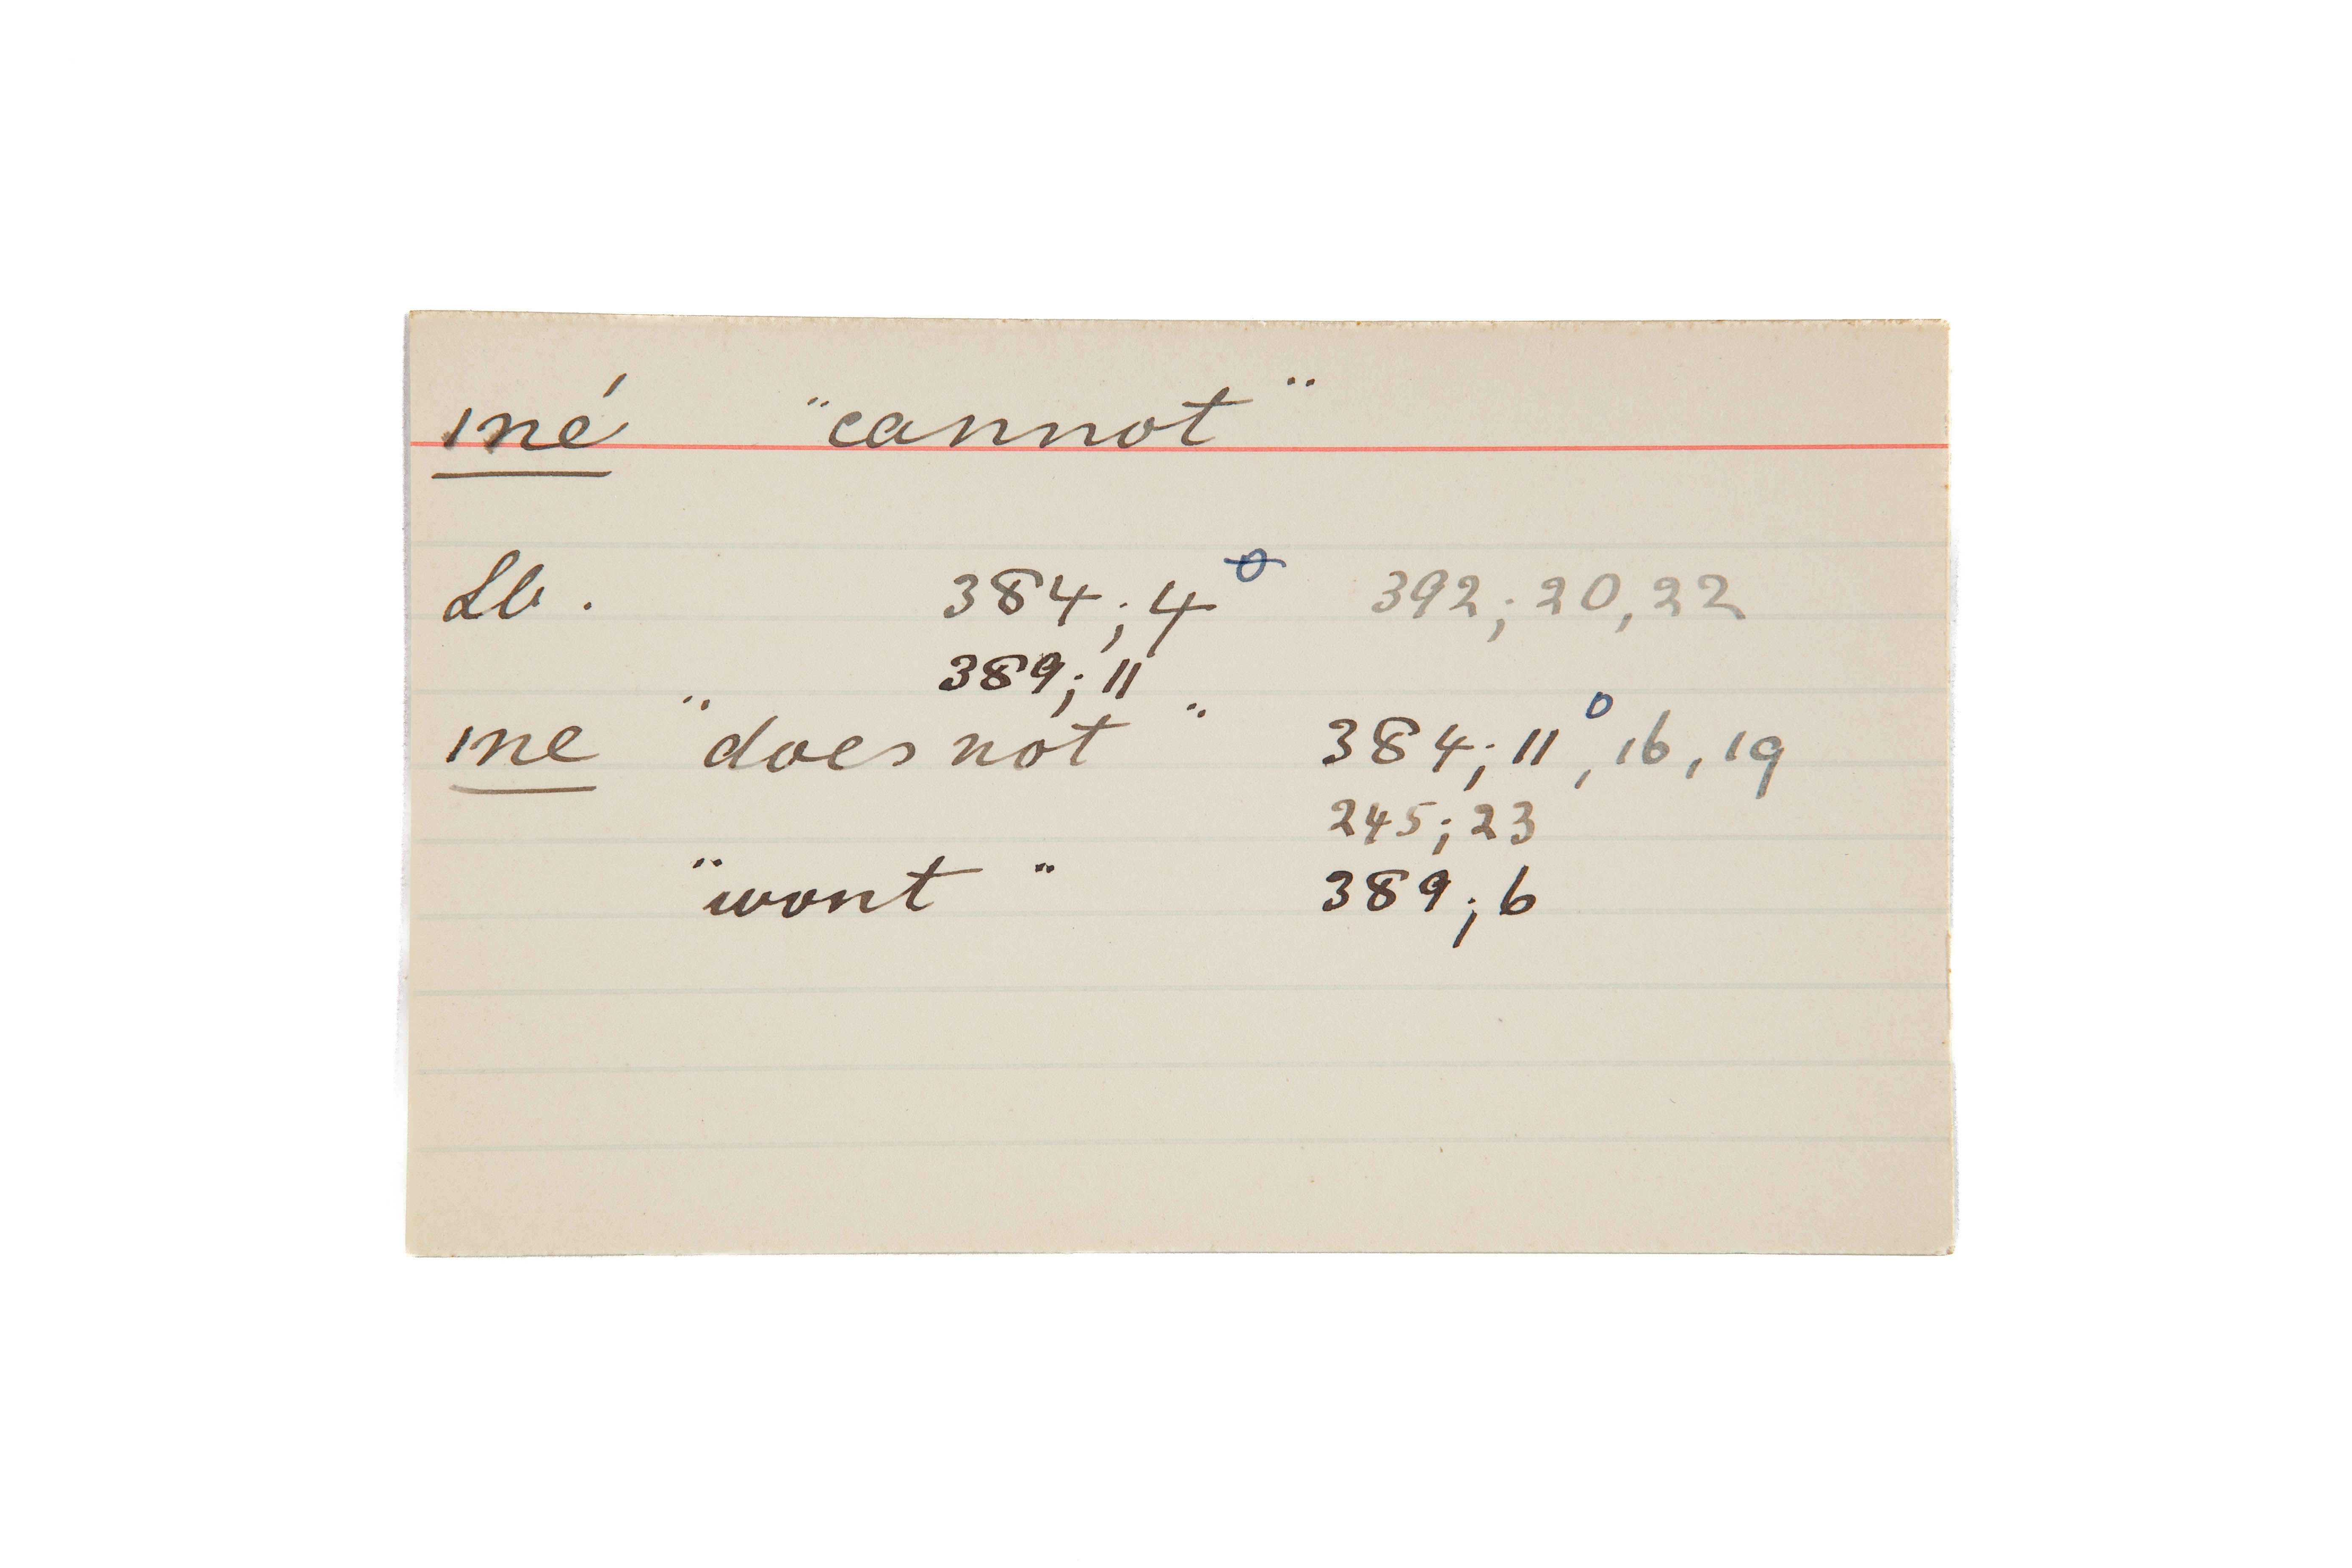 ıné "cannot"
Lb. 384; 4° 392; 20, 22
389; 11
ıne "does not" 384; 11°, 16, 19
245; 23
"wont" 389; 6